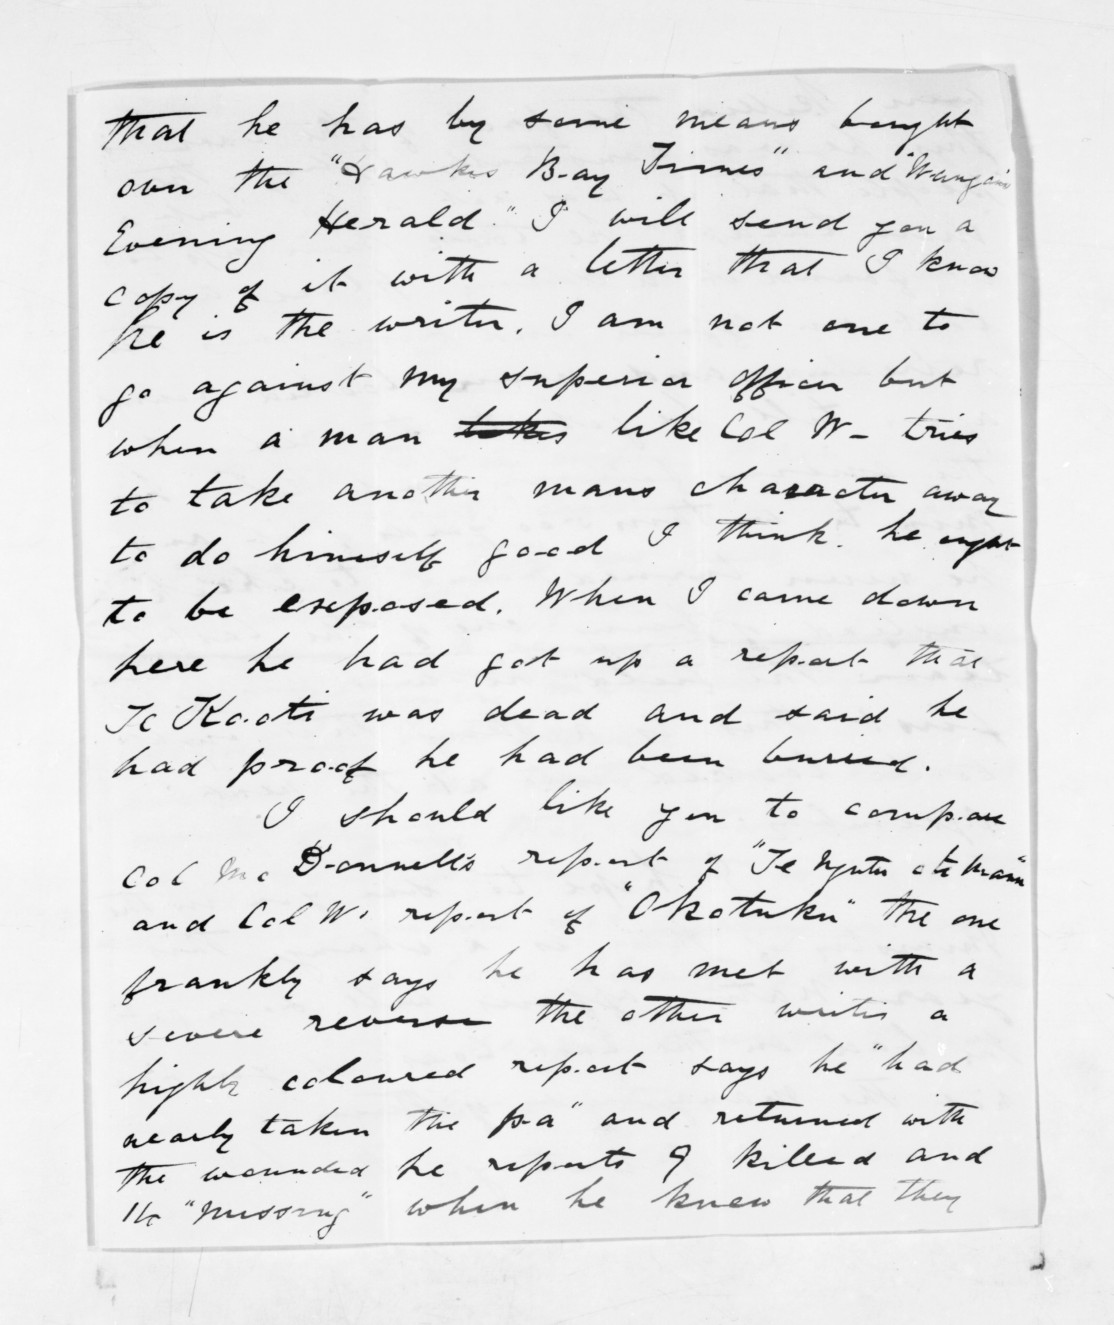 that he has by some means bought
over the "Hawkes Bay Times" and "Wangani
Evening Herald". I will send you a
copy of it with a letter that I know
he is the writer. I am not one to
go against my superior officer but
when a man takes like Col W- tries
to take another mans character away
to do himself good I think he ought
to be exposed. When I came down
here he had got up a report that
Te Kooti was dead and said he
had proof he had been buried.
I should like you to compare
Col McDonnell's report of "Te Ngutu o te Manu"
and Col W. report of "Okotuku" the one
frankly says he has met with a
severe reverse the other writes a
highly coloured report says he "had
nearly taken the pa" and returned with
the wounded he reports 9 killed and
14 "missing" when he knew that they